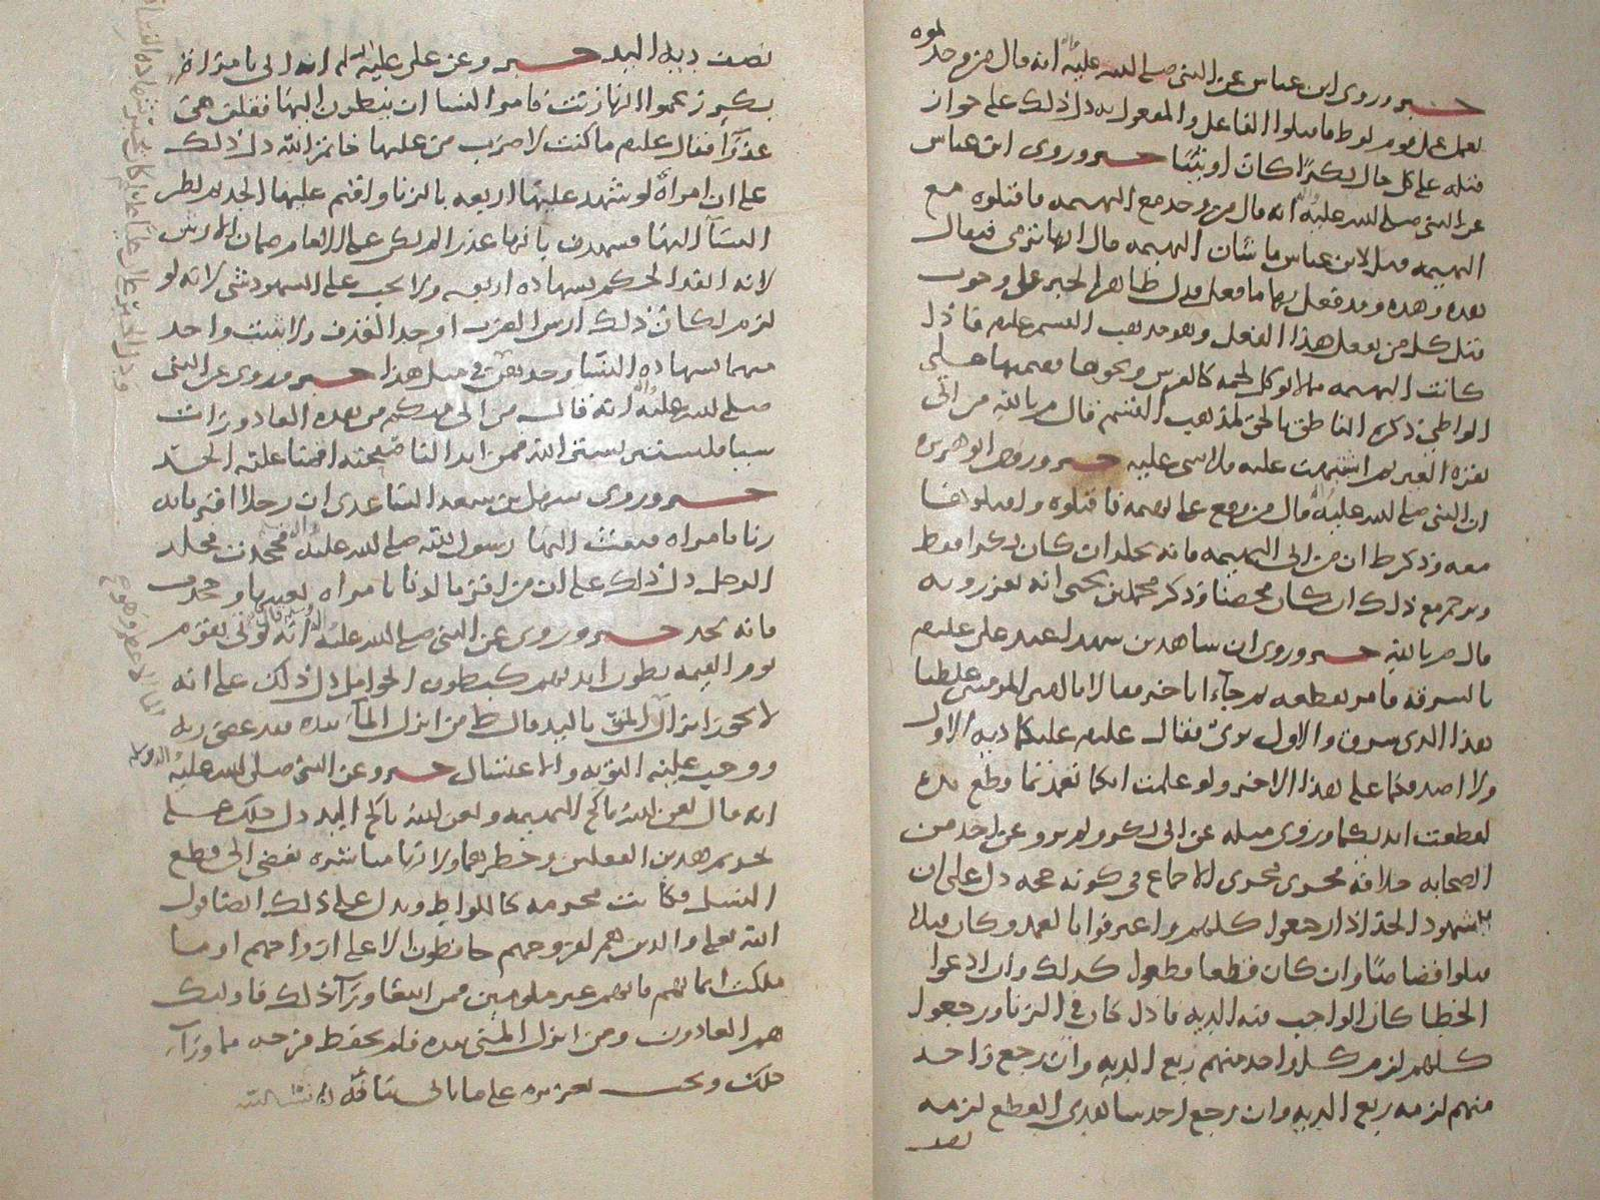 خبر وروى ابن عباس عن النبي صلى الله عليه انه قال من وجدتموه
يعمل عمل قوم لوط فاقتلوا الفاعل والمفعول به دل ذلك على جواز
قتله على كل حال بكرًا كان او ثيبًا خبر وروى ابن عباس
عن النبي صلى الله عليه انه قال من وجد مع البهيمه فاقتلوه مع
البهيمه فقيل لابن عباس ما شان البهيمه قال انها ترى فيقال
هذه وهذه وقد فعل بها ما فعل فدل ظاهر الخبر على وجوب
قتل كل من يعمل هذا الفعل وهو مذهب القسم عليه فاذا
كانت البهيمه مما لا يوكل لحمه كالفرس ونحوها
الواطي ذكره الناطق بالحق لمذهب القسم قال م بالله من اتى
خبر وروى ابو هريره
ان النبي صلى الله عليه قال من وقع على بهيمه فاقتلوه واقتلوها
معه وذكر ط ان من اتى البهيمه فانه يجلد ان كان بكرا فقط
ويرجم مع ذلك ان كان محصنا وذكر محمد بن يحيى انه يعزر وبه
قال م بالله خبر وروى ان شاهدين شهدا عند على عليه
بالسرقه فامر بقطعه ثم جاءا باخر فقالا يا امير المومنين غلطنا
هذا الذى سرق والاول برئ فقال عليه عليكما ديه الاول
ولا اصدقكما على هذا الاخر ولو علمت انكما تعمدتما قطع يده
لقطعت ايديكما وروى مثله عن ابى بكر ولم يرو عن احد من
الصحابه خلافه فجرى مجرى الاجماع فى كونه حجه دل على ان
شهود الحد اذا رجعوا كلهم واعترفوا بالعمد وكان قتلا
قتلوا قصاصًا وان كان قطعا قطعوا كذلك وان ادعوا
الخطا كان الواجب فيه الديه فاذا كان فى الزنا ورجعوا
كلهم لزم كل واحد منهم ربع الديه وان رجع واحد
منهم لزمه ربع الديه وان رجع احد شاهدى القطع لزمه
نصف
نصف ديه اليد خبر وعن على عليه انه اتى بامراة
بكر زعموا انها زنت فامر النسا ان ينظرن اليها فقلن هى
عذرآ فقال عليه ما كنت لاضرب من عليها خاتم الله دل ذلك
على ان امراة لو شهد عليها اربعه بالزنا واقيم عليها الحد ثم نظر
النسآ اليها فشهدن بانها عذرا لم يكن على الامام ضمان الارش
لانه انفذ الحكم بشهاده اربعه ولا يجب على الشهود شى لانه لو
لزم لكان ذلك ارش الضرب او حد القذف ولا يثبت واحد
منهما بشهاده النسا وحدهن فى مثل هذا خبر وروى عن النبي
صلى الله عليه انه قال من اتى منكم من هذه القاذورات
شيئا فليستتر بستر الله فمن ابدا لنا صفحته اقمنا عليه الحد
خبر وروى سهل بن سعد الساعدى ان رجلا اقر بانه
زنا بامراه فبعث اليها رسول الله صلى الله عليه فجحدت فجلد
الرجل دل ذلك على ان من اقر بالزنا بامراه بعينها وجحدت
فانه يحد خبر وروى عن النبي صلى الله عليه انه قال يوتى بقوم
يوم القيمه بطون ايديهم كبطون الحوامل دل ذلك على انه
لا يجوز انزال المني باليد قال ط من انزل المآ بيده فقد عصى ربه
ووجب عليه التوبه والاغتسال خبر وعن النبي صلى الله عليه
انه قال لعن الله ناكح البهيمه ولعن الله ناكح اليد دل ذلك على
تحريم هذين الفعلين وحظرهما ولانها مباشره تفضى الى قطع
النسل فكانت محرمه كاللواط ويدل على ذلك ايضا قول
الله تعلى والذين هم لفروجهم حافظون الا على ازواجهم او ما
ملكت ايمانهم فانهم غير ملومين فمن ابتغا ورآ ذلك فاوليك
هم العادون ومن انزل المني بيده فلم يحفظ فرجه مما ورآ
ذلك ويجب تعزيره على ما ياتى بيانه ان شا الله